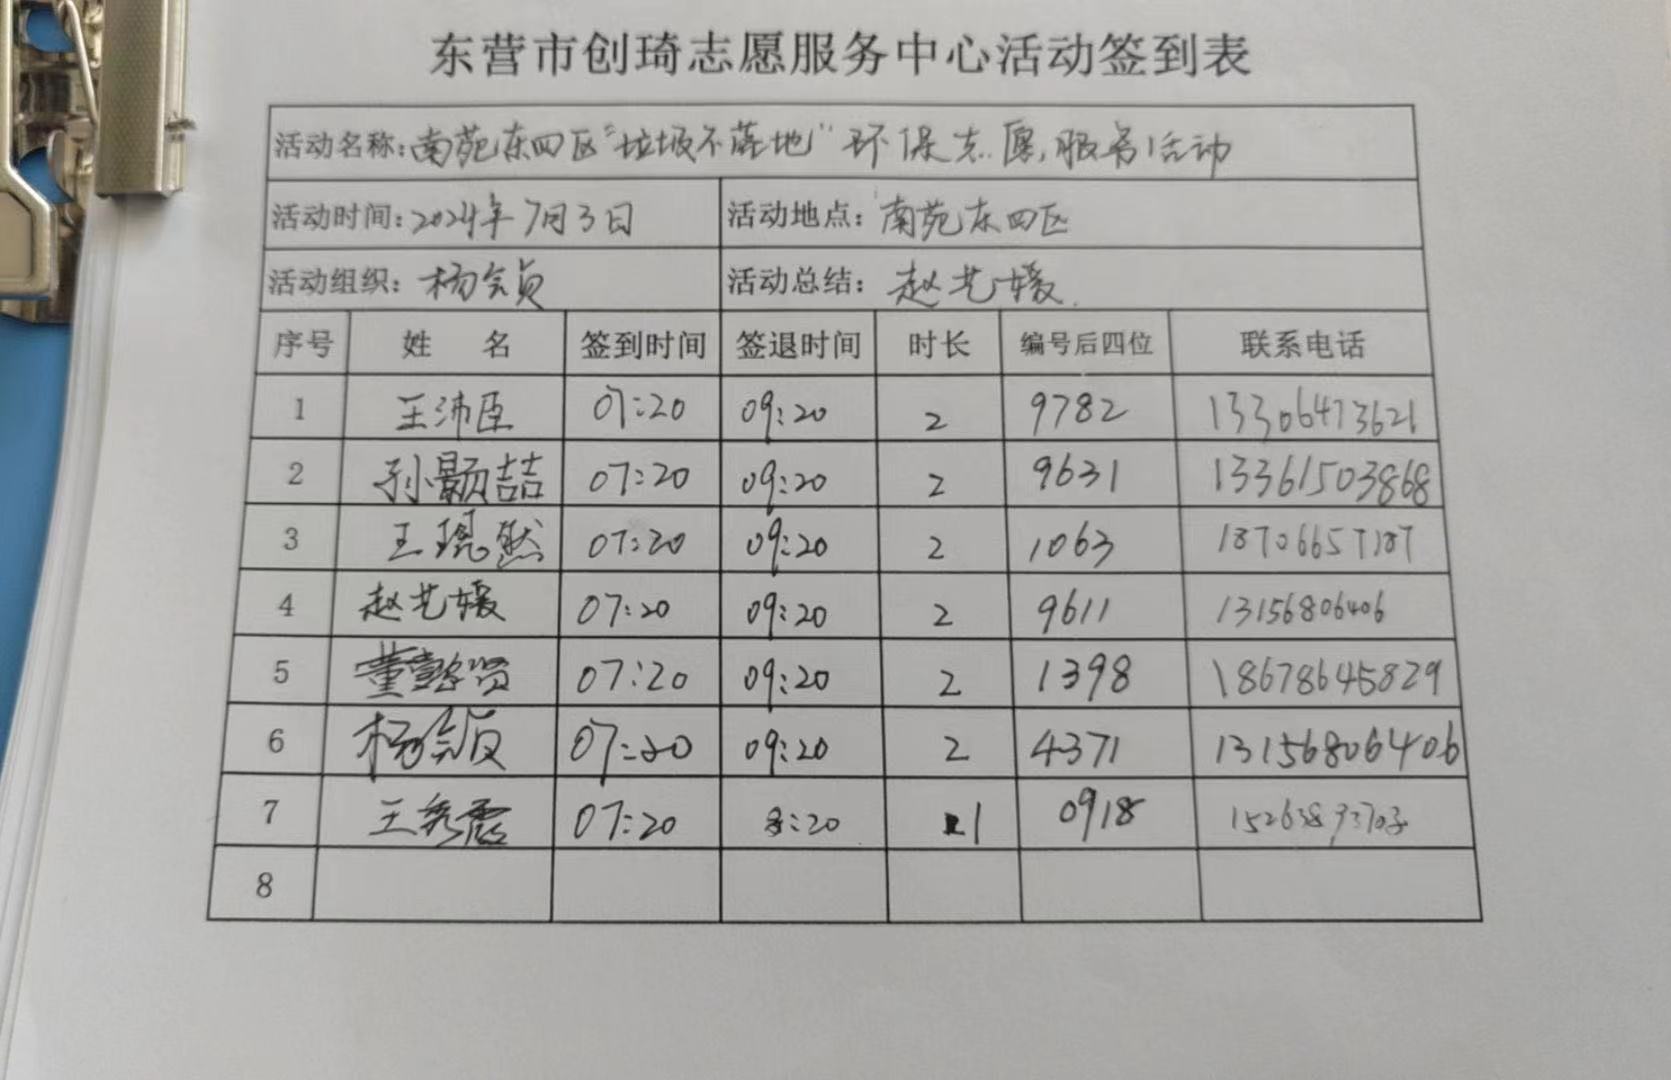 东营市创琦志愿服务中心活动签到表
活动名称:南苑东四区"垃圾不落地"环保志愿服务活动
活动时间:2024年7月3日 活动地点:南苑东四区
活动组织:杨会贞 活动总结:赵艺媛
序号 姓 名 签到时间 签退时间 时长 编号后四位 联系电话
1 王沛臣 07:20 09:20 2 9782 13306473621
2 孙颢喆 07:20 09:20 2 9631 13361503868
3 王琨然 07:20 09:20 2 1063 18706657187
4 赵艺媛 07:20 09:20 2 9611 13156806406
5 董懿贤 07:20 09:20 2 1398 18678645829
6 杨会贞 07:20 09:20 2 4371 13156806406
7 王秀霞 07:20 8:20 1 0918
8